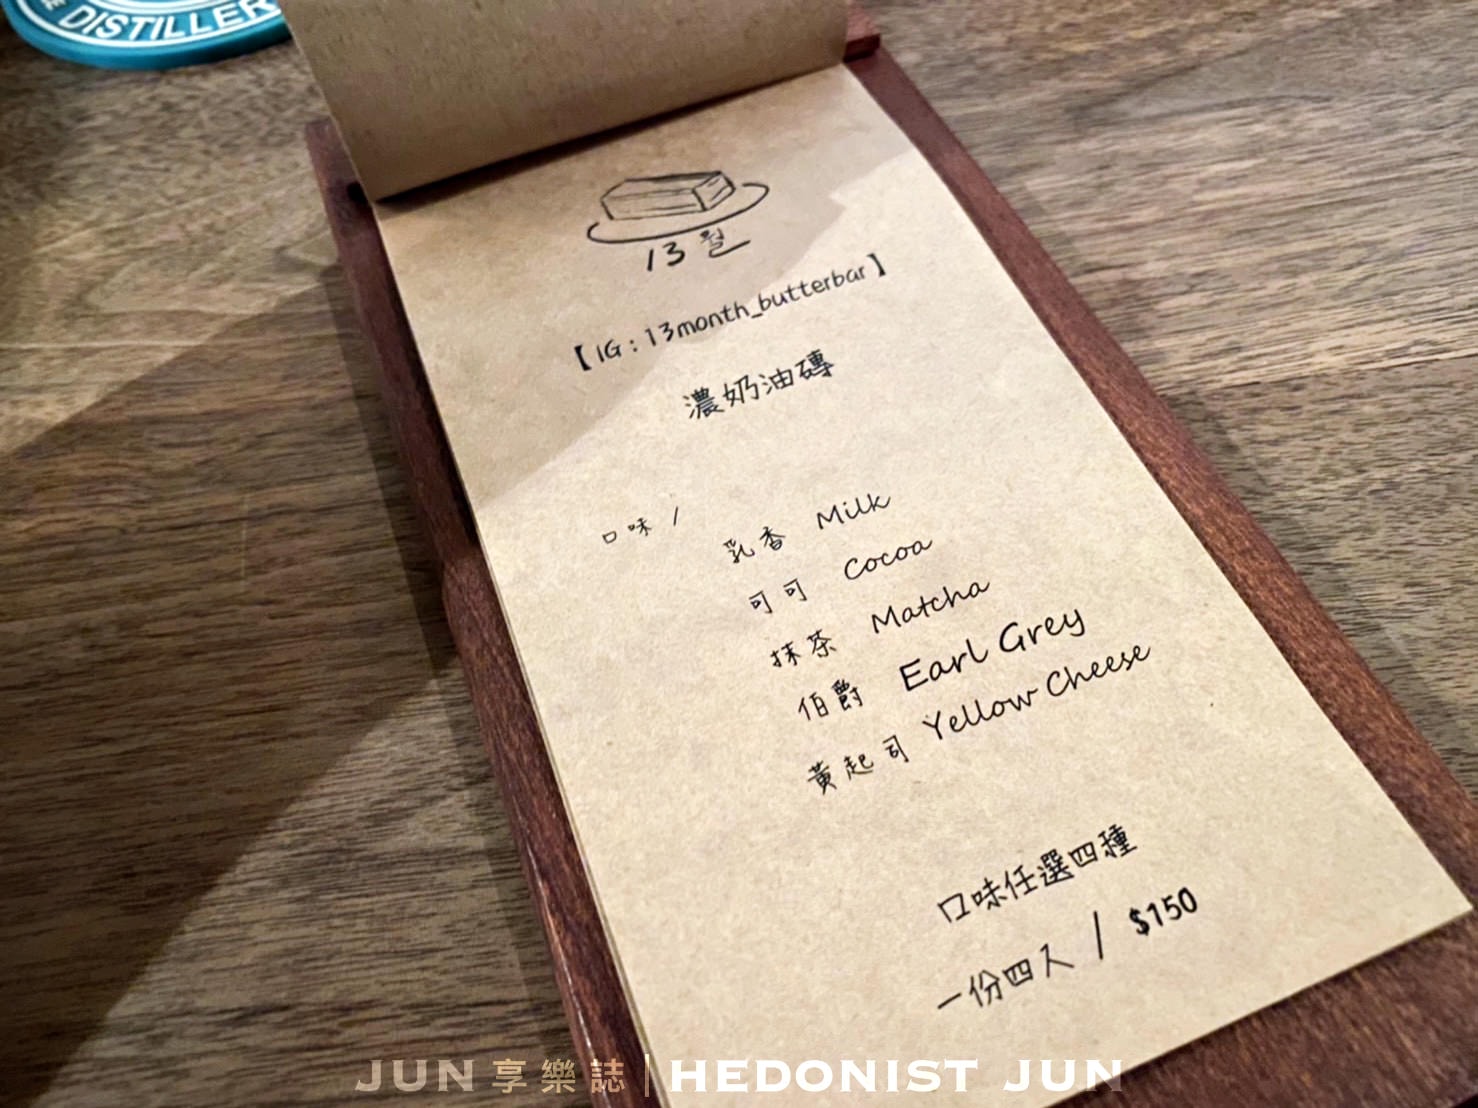 DISTILLER
13월
【IG:13month_butterbar】
濃奶油磚
口味 /
乳香 Milk
可可 Cocoa
抹茶 Matcha
伯爵 Earl Grey
黃起司 Yellow Cheese
口味任選四種
一份四入 / $150
JUN享樂誌|HEDONIST JUN